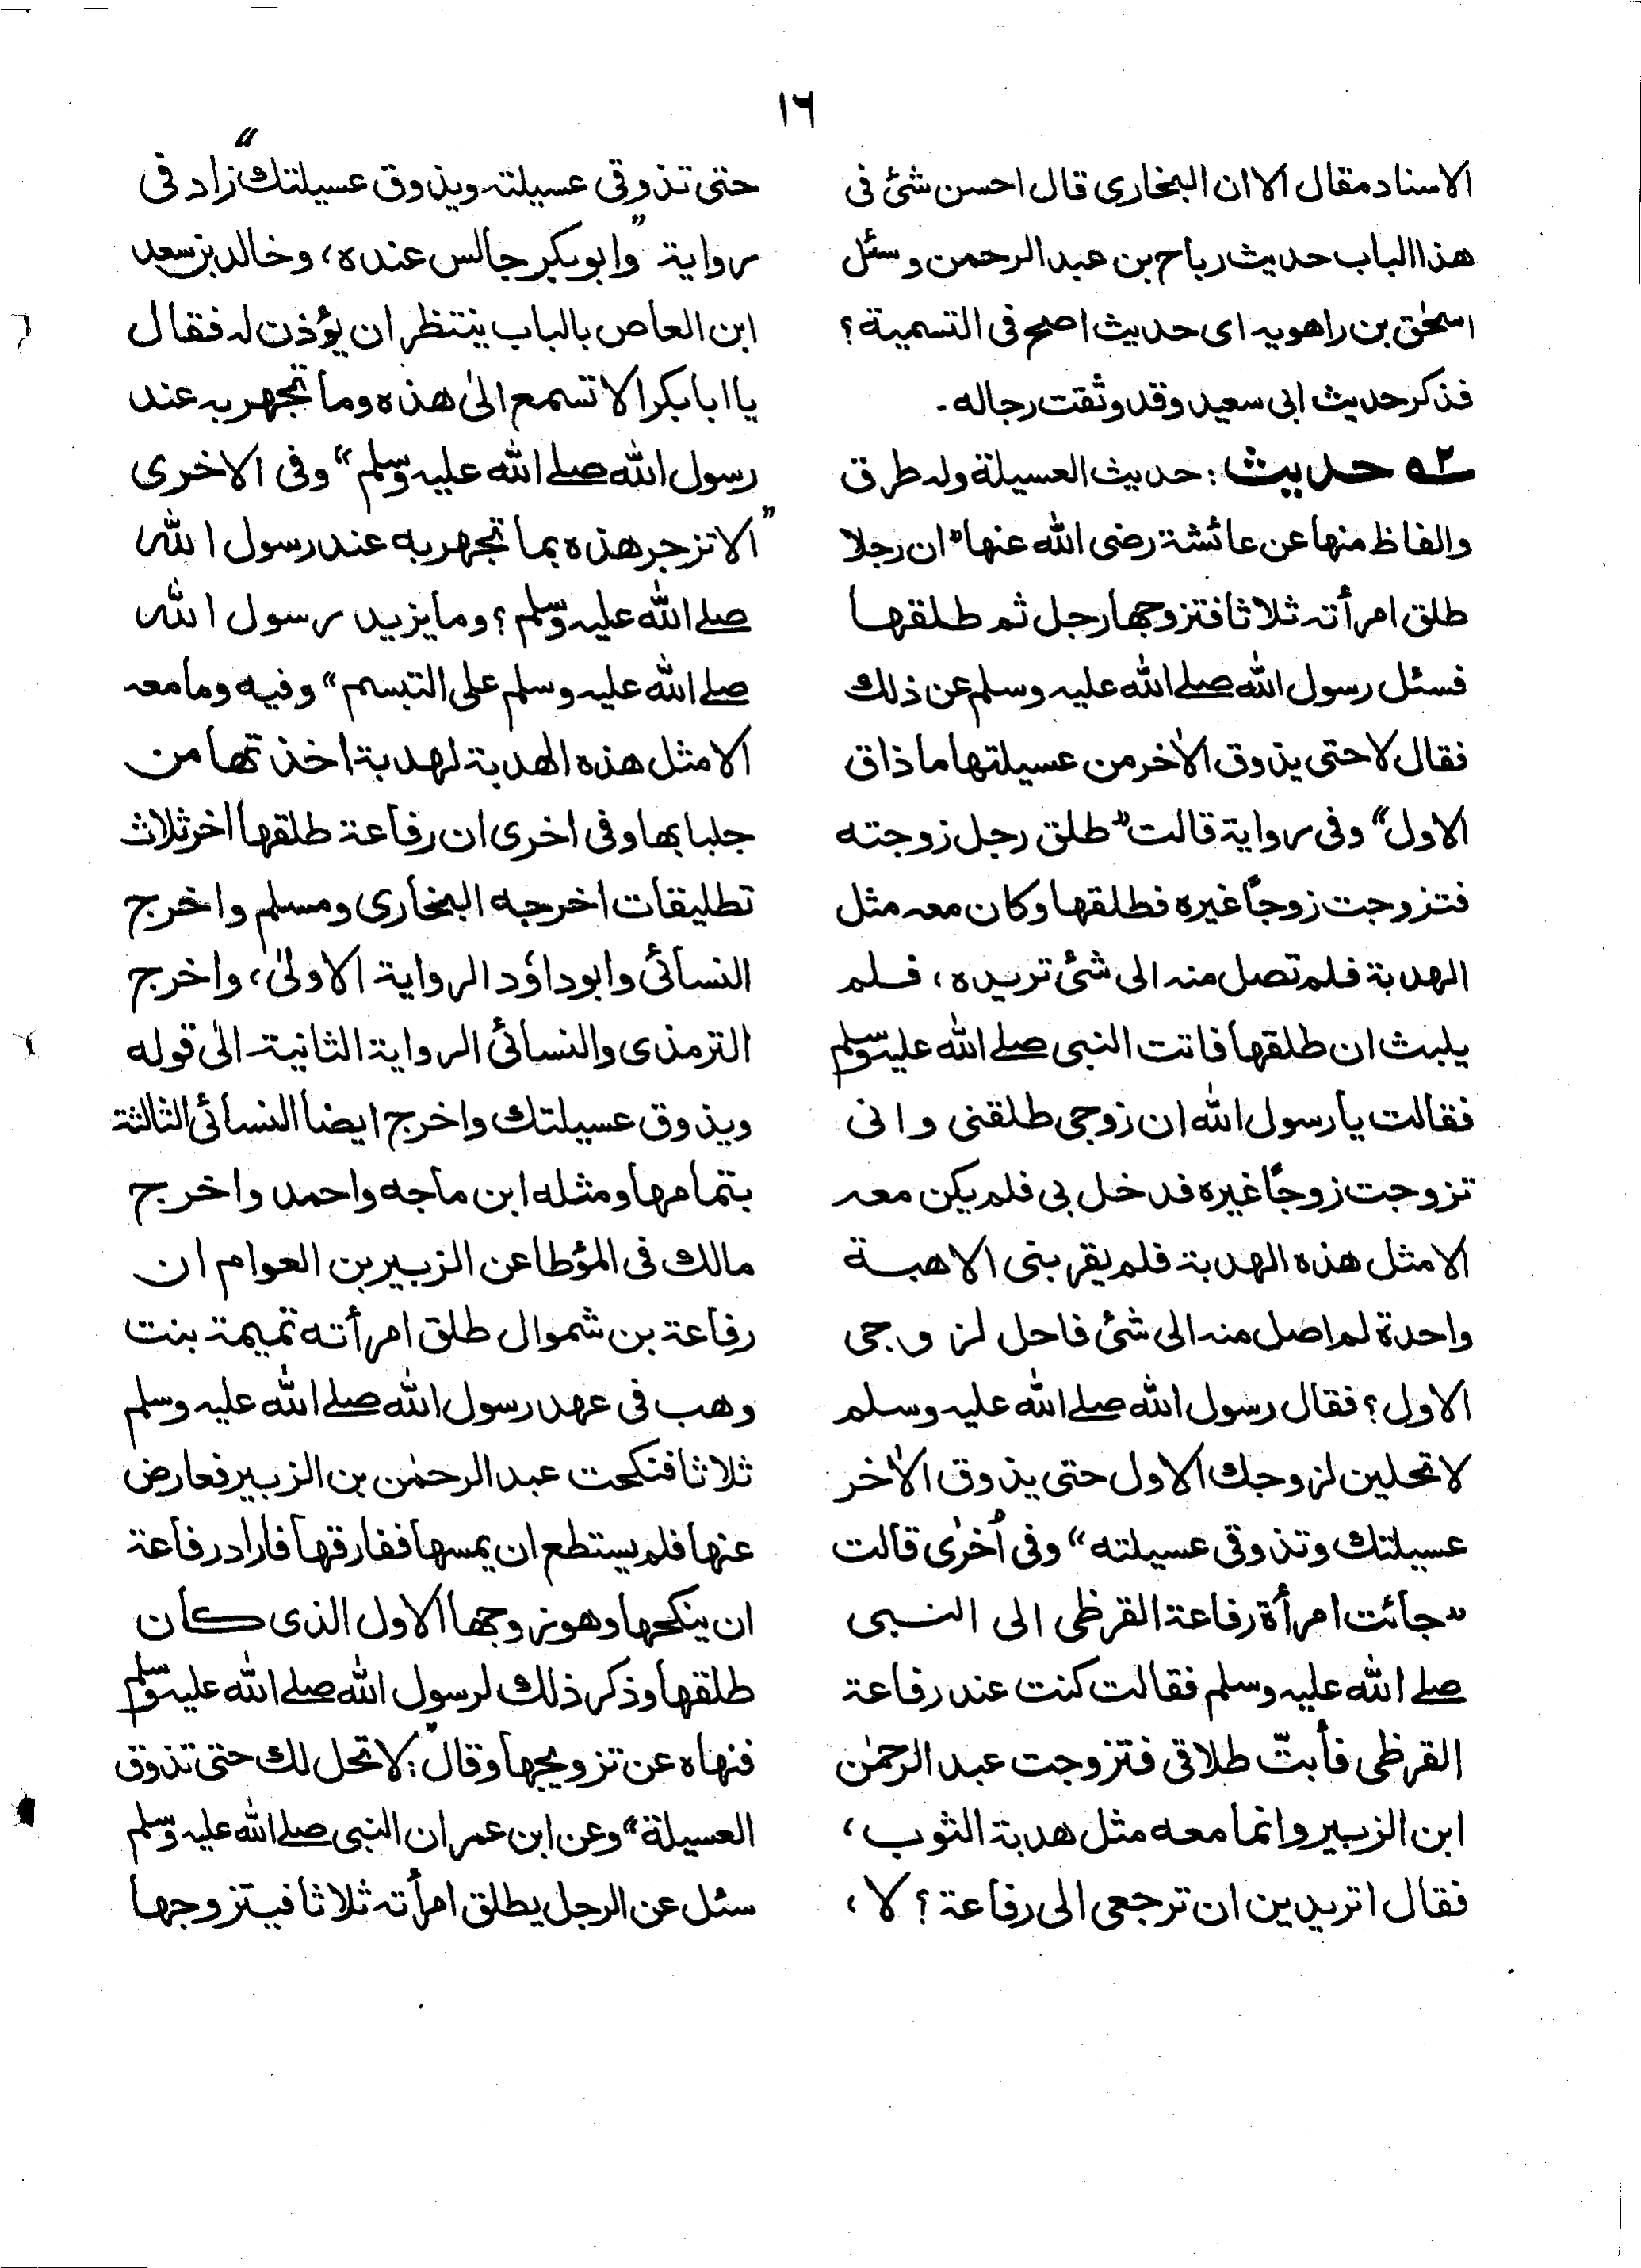 ١٦
الاسناد مقال الا ان البخاری قال احسن شئ فی
هذا الباب حدیث رباح بن عبد الرحمن وسئل
اسحٰق بن راهویه ای حدیث اصح فی التسمیة؟
فذکر حدیث ابی سعید وقد وثقت رجاله۔
حدیث: حدیث العسیلة وله طرق
والفاظ منها عن عائشة رضی الله عنها "ان رجلا
طلق امرأته ثلاثا فتزوجها رجل ثم طلقها
فسئل رسول الله صلے الله علیه وسلم عن ذلك
فقال لا حتی یذوق الاٰخر من عسیلتها ما ذاق
الاول" وفی روایة قالت "طلق رجل زوجته
فتزوجت زوجًا غیره فطلقها وکان معه مثل
الهدبة فلم تصل منه الی شئ تریده، فلم
یلبث ان طلقها فاتت النبی صلے الله علیه وسلم
فقالت یا رسول الله ان زوجی طلقنی وانی
تزوجت زوجًا غیره فدخل بی فلم یکن معه
الا مثل هذه الهدبة فلم یقربنی الا هبة
واحدة لم اصل منه الی شئ فاحل لزوجی
الاول؟ فقال رسول الله صلے الله علیه وسلم
لا تحلین لزوجك الاول حتی یذوق الاٰخر
عسیلتك وتذوقی عسیلته" وفی أخرٰی قالت
"جائت امرأة رفاعة القرظی الی النبی
صلے الله علیه وسلم فقالت کنت عند رفاعة
القرظی فأبتّ طلاقی فتزوجت عبد الرحمٰن
ابن الزبیر وانما معه مثل هدبة الثوب،
فقال اتریدین ان ترجعی الی رفاعة؟ لا،
حتی تذوقی عسیلته ویذوق عسیلتك" زاد فی
روایة "وابوبکر جالس عنده، وخالد بن سعید
ابن العاص بالباب ینتظر ان یؤذن له فقال
یا ابا بکر الا تسمع الیٰ هذه وما تجهر به عند
رسول الله صلے الله علیه وسلم" وفی الاخری
"الا تزجر هذه بما تجهر به عند رسول الله
صلے الله علیه وسلم؟ وما یزید رسول الله
صلے الله علیه وسلم علی التبسم" وفیه وما معه
الا مثل هذه الهدبة لهدبة اخذتها من
جلبابها وفی اخری ان رفاعة طلقها اٰخر ثلاث
تطلیقات اخرجه البخاری ومسلم واخرج
النسائی وابوداؤد الروایة الاولیٰ، واخرج
الترمذی والنسائی الروایة الثانیة الیٰ قوله
ویذوق عسیلتك واخرج ایضا النسائی الثالثة
بتمامها ومثله ابن ماجه واحمد واخرج
مالك فی المؤطا عن الزبیر بن العوام ان
رفاعة بن شموال طلق امرأته تمیمة بنت
وهب فی عهد رسول الله صلے الله علیه وسلم
ثلاثا فنکحت عبد الرحمٰن بن الزبیر فعارض
عنها فلم یستطع ان یمسها ففارقها فاراد رفاعة
ان ینکحها وهو زوجها الاول الذی کان
طلقها وذکر ذلك لرسول الله صلے الله علیه وسلم
فنهاه عن تزویجها وقال: "لا تحل لك حتی تذوق
العسیلة" وعن ابن عمر ان النبی صلے الله علیه وسلم
سئل عن الرجل یطلق امرأته ثلاثا فیتزوجها